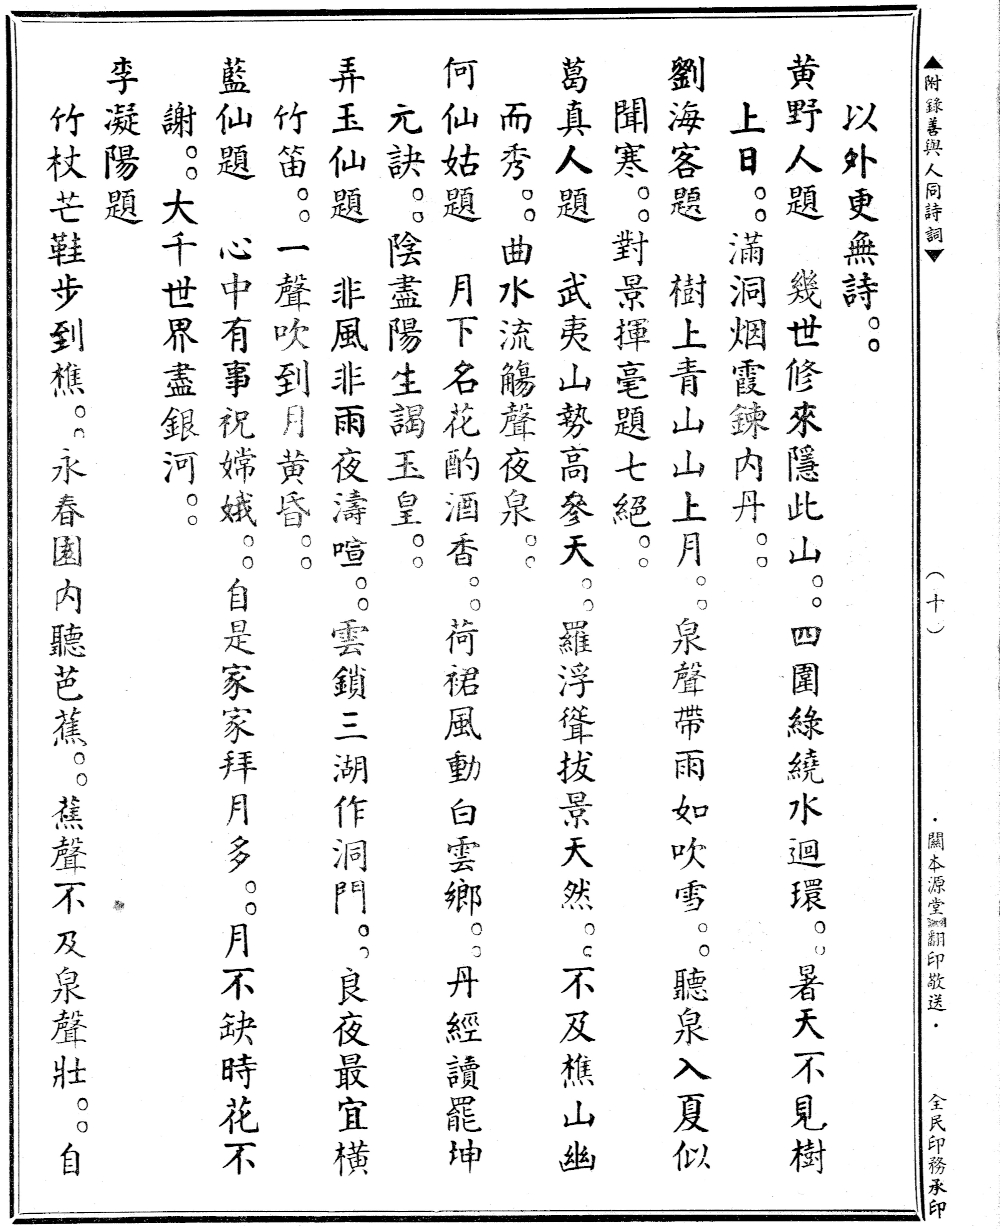 ▲附錄善與人同詩詞▼
（十）
·關本源堂翻印敬送·
全民印務承印
以外更無詩。。
黄野人題　幾世修來隱此山。。四圍綠繞水迴環。。暑天不見樹
上日。。滿洞烟霞鍊內丹。。
劉海客題　樹上青山山上月。。泉聲帶雨如吹雪。。聽泉入夏似
聞寒。。對景揮毫題七絕。。
葛真人題　武夷山勢高參天。。羅浮聳拔景天然。。不及樵山幽
而秀。。曲水流觴聲夜泉。。
何仙姑題　月下名花酌酒香。。荷裙風動白雲鄉。。丹經讀罷坤
元訣。。陰盡陽生謁玉皇。。
弄玉仙題　非風非雨夜濤喧。。雲鎖三湖作洞門。。良夜最宜橫
竹笛。。一聲吹到月黃昏。。
藍仙題　心中有事祝嫦娥。。自是家家拜月多。。月不缺時花不
謝。。大千世界盡銀河。。
李凝陽題
竹杖芒鞋步到樵。。永春園內聽芭蕉。。蕉聲不及泉聲壯。。自